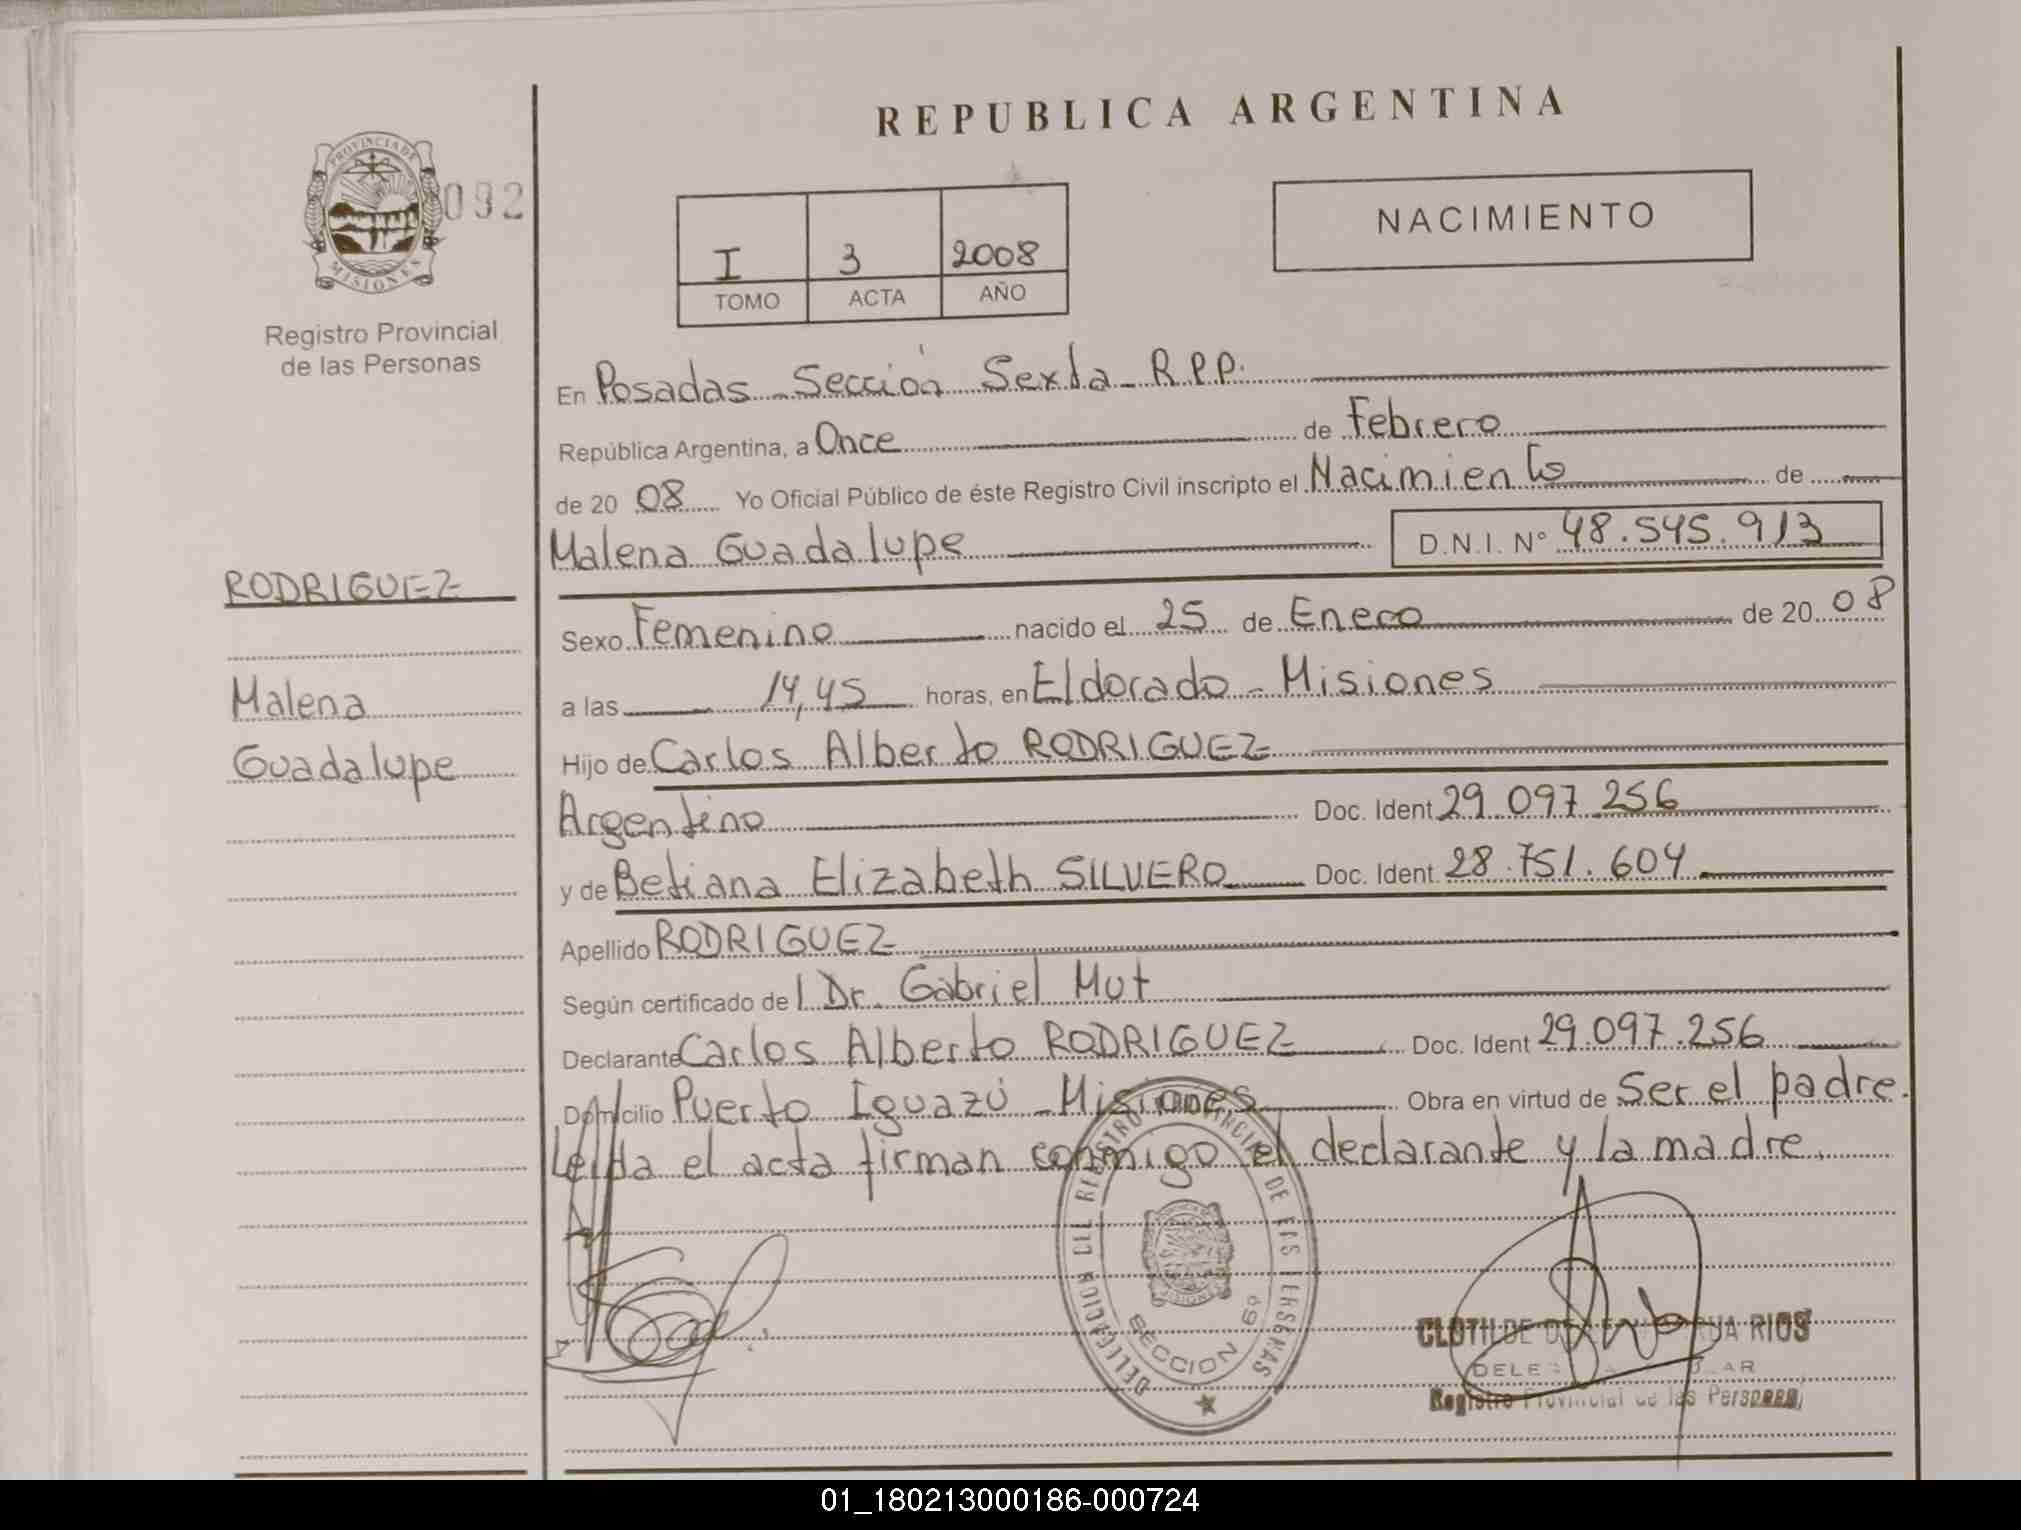 REPUBLICA ARGENTINA
PROVINCIA DE
MISIONES
092
Registro Provincial
de las Personas
I 3 2008
TOMO ACTA AÑO
NACIMIENTO
En Posadas - Sección Sexta - R.P.P.
República Argentina, a Once de Febrero
de 20 08 Yo Oficial Público de éste Registro Civil inscripto el Nacimiento de
Malena Guadalupe D.N.I. Nº 48.545.913
RODRIGUEZ
Malena
Guadalupe
Sexo Femenino nacido el 25 de Enero de 20 08
a las 14,45 horas, en Eldorado - Misiones
Hijo de Carlos Alberto RODRIGUEZ
Argentino Doc. Ident 29.097.256
y de Betiana Elizabeth SILVERO Doc. Ident. 28.751.604
Apellido RODRIGUEZ
Según certificado de l Dr. Gabriel Mut
Declarante Carlos Alberto RODRIGUEZ Doc. Ident 29.097.256
Domicilio Puerto Iguazú - Misiones Obra en virtud de Ser el padre.
Leida el acta firman conmigo el declarante y la madre.
DELEGACION DEL REGISTRO PROVINCIAL DE LAS PERSONAS
MISIONES
SECCION 6º
CLOTILDE RIOS
Registro Provincial de las Personas
01_180213000186-000724